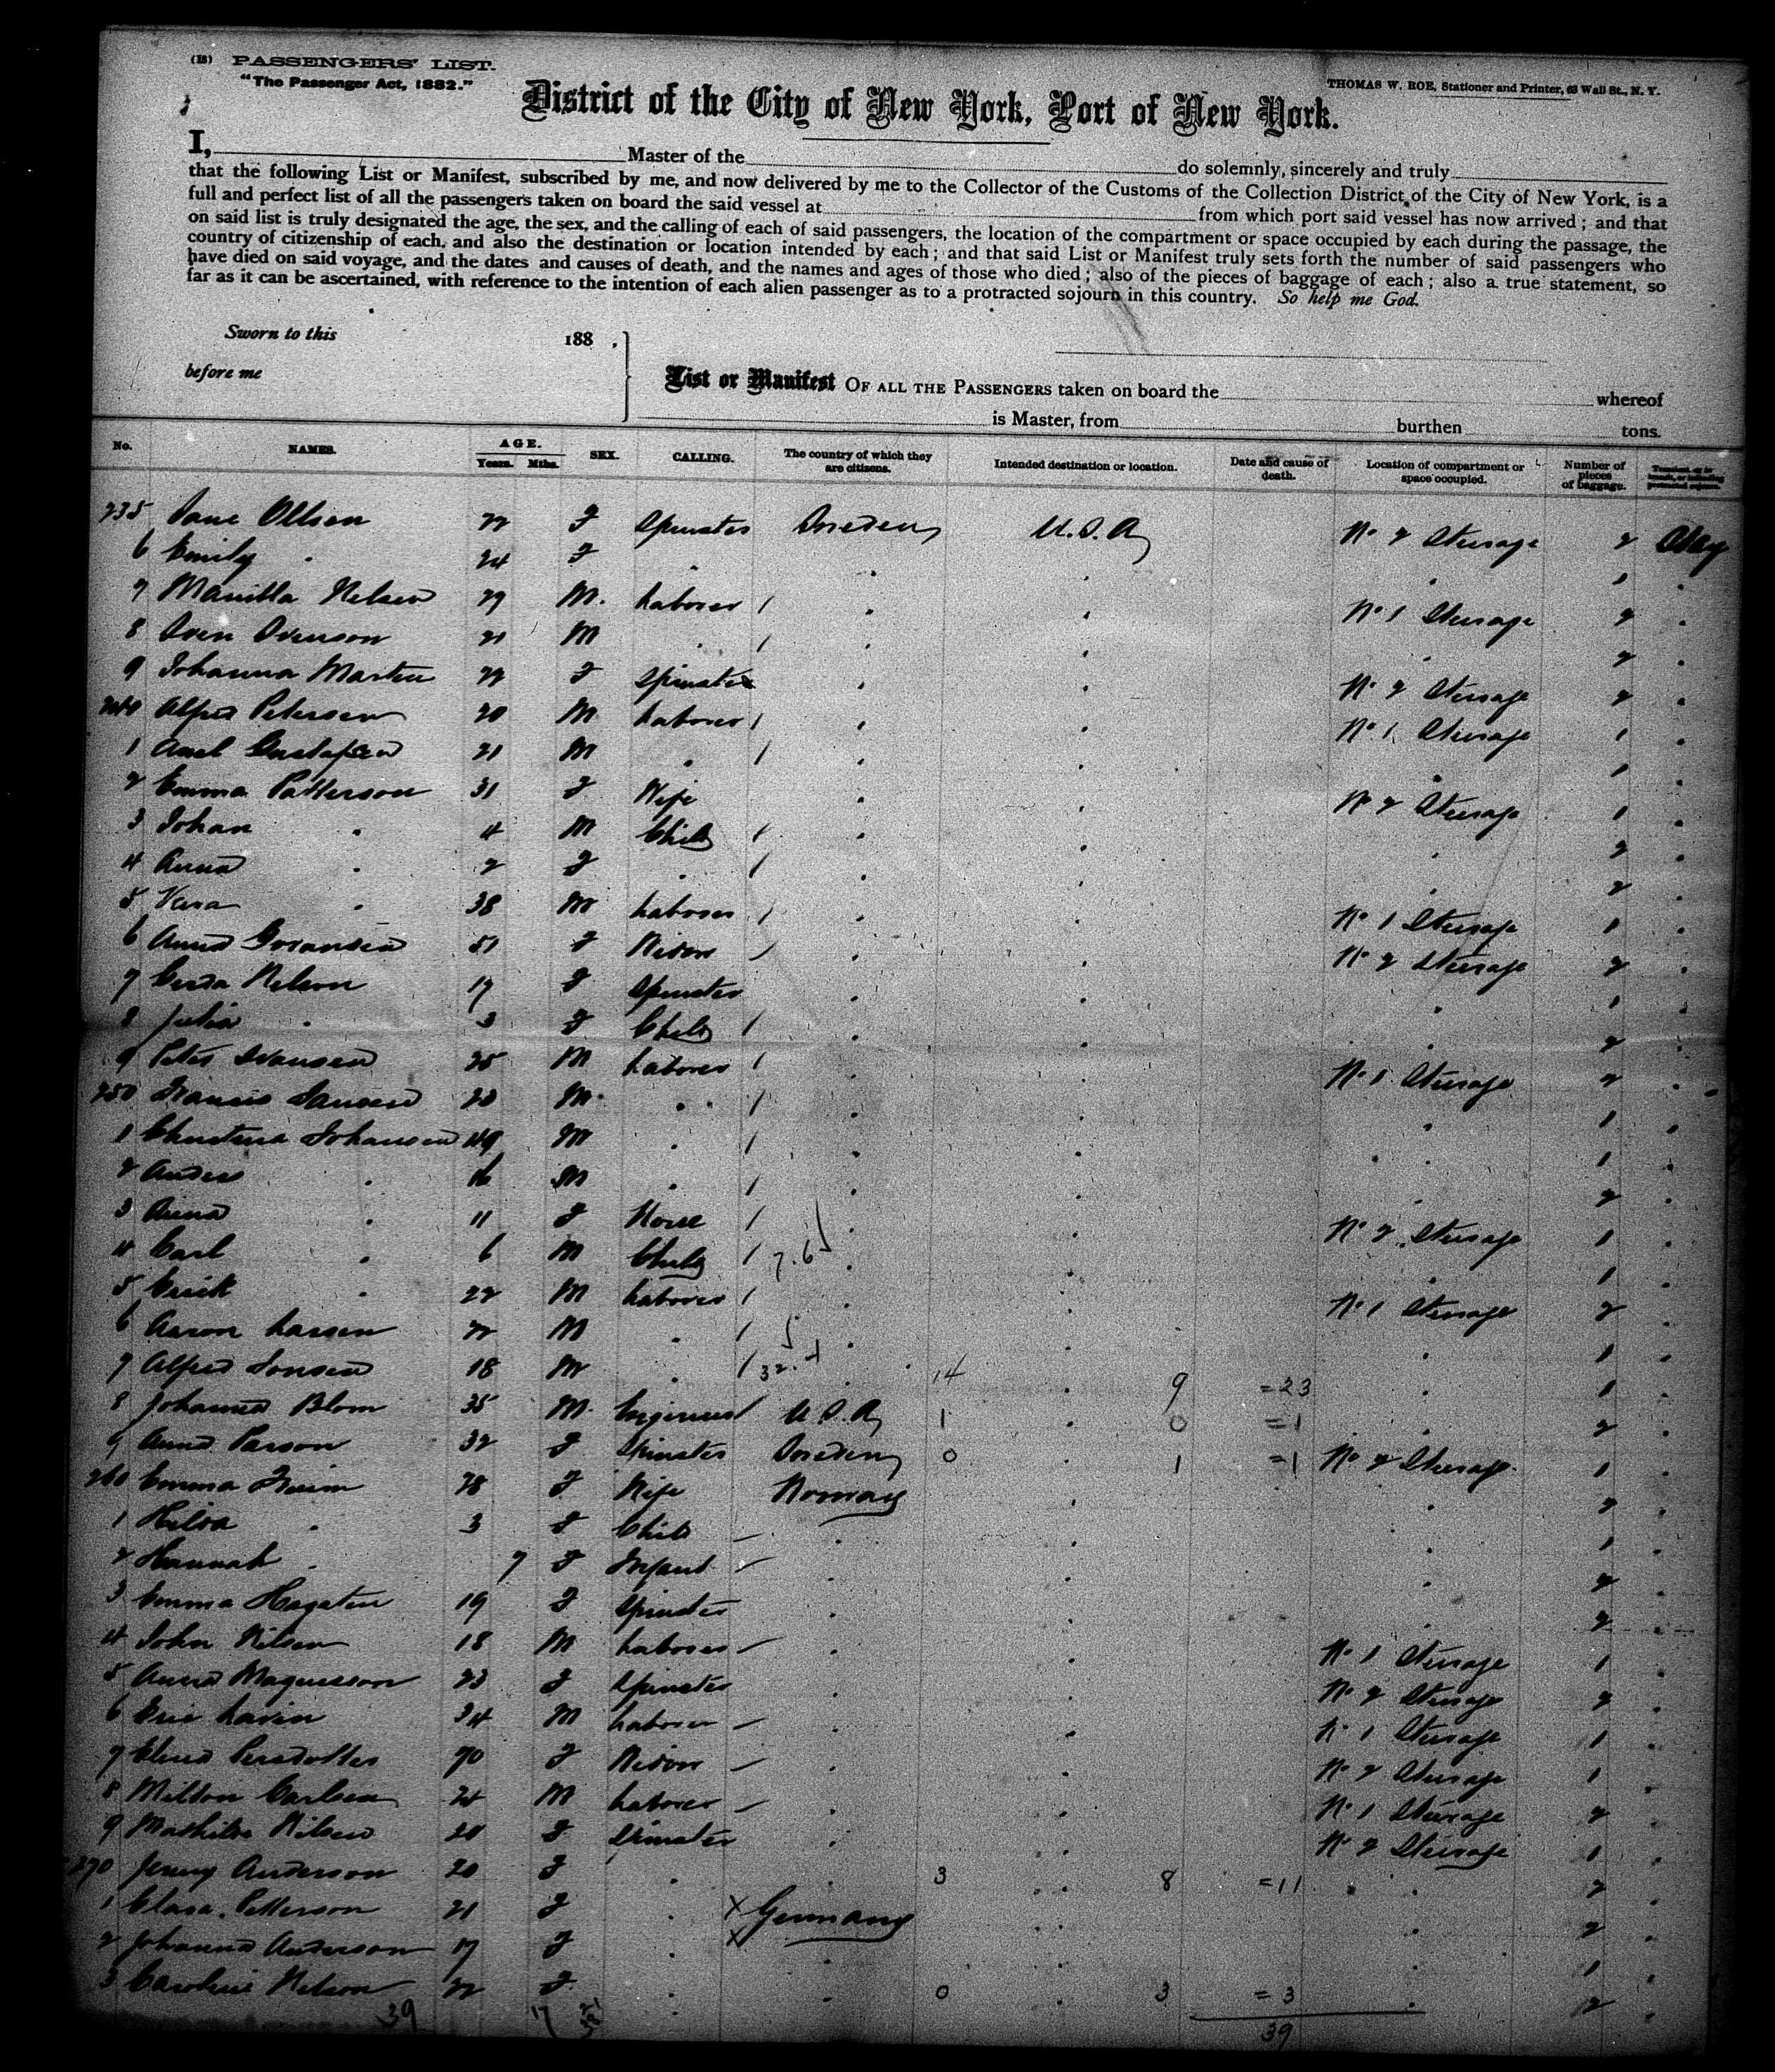 (18) PASSENGERS' LIST.
"The Passenger Act, 1882."
THOMAS W. ROE, Stationer and Printer, 63 Wall St., N. Y.
District of the City of New York, Port of New York.
I, Master of the do solemnly, sincerely and truly
that the following List or Manifest, subscribed by me, and now delivered by me to the Collector of the Customs of the Collection District of the City of New York, is a
full and perfect list of all the passengers taken on board the said vessel at from which port said vessel has now arrived; and that
on said list is truly designated the age, the sex, and the calling of each of said passengers, the location of the compartment or space occupied by each during the passage, the
country of citizenship of each, and also the destination or location intended by each; and that said List or Manifest truly sets forth the number of said passengers who
have died on said voyage, and the dates and causes of death, and the names and ages of those who died; also of the pieces of baggage of each; also a true statement, so
far as it can be ascertained, with reference to the intention of each alien passenger as to a protracted sojourn in this country. So help me God.
Sworn to this 188 .
before me
List or Manifest OF ALL THE PASSENGERS taken on board the whereof
is Master, from burthen tons.
No. NAMES. AGE. Years. Mths. SEX. CALLING. The country of which they are citizens. Intended destination or location. Date and cause of death. Location of compartment or space occupied. Number of pieces of baggage.
235 Jane Ollson 22 F Spinster Sweden U.S.A No 2 Steerage 2
6 Emily " 24 F " " " " 1 "
7 Nelson 29 M. Laborer " " No 1 Steerage 2 "
8 Sven Svenson 21 M " " " " 2 "
9 Johanna Marten 22 F Spinster " " No 2 Steerage 2 "
240 Alfred Petersen 20 M Laborer " " No 1 Steerage 1 "
1 Axel Gustafsen 21 M " " " " 1 "
2 Emma Patterson 31 F Wife " " No 2 Steerage 1 "
3 Johan " 4 M Child " " " 2 "
4 Anna " 2 F " " " " 2 "
5 " 38 M Laborer " " No 1 Steerage 1 "
6 Anna Goransen 51 F Widow " " No 2 Steerage 2 "
7 Gerda Nelson 17 F Spinster " " " 1 "
8 Julia " 3 F Child " " " 2 "
9 Peter Swansen 25 M Laborer " " No 1 Steerage 2 "
250 Francis Jansen 20 M " " " " 1 "
1 Christina Johansen 49 M " " " " 1 "
2 Anders " 16 M " " " " 2 "
3 Anna " 11 F None " " No 2 Steerage 1 "
4 Carl " 6 M Child 7.6 " " " 1 "
5 Erick " 22 M Laborer " " No 1 Steerage 2 "
6 Aaron Larsen 22 M " " " " 1 "
7 Alfred Jonsen 18 M " 32. 14 " 9 =23 " 1 "
8 Johanna Blom 35 M Engineer U.S.A 1 " 0 =1 " 2 "
9 Anna Parson 32 F Spinster Sweden 0 1 =1 No 2 Steerage 1 "
260 Emma 28 F Wife Norway " " 2 "
1 Hilda " 3 F Child " " " 1 "
2 Hannah " 7 F Infant " " " 2 "
3 Emma Hagaten 19 F Spinster " " " 2 "
4 John Nilsen 18 M Laborer " " No 1 Steerage 1 "
5 Anna Magnusson 23 F Spinster " " No 2 Steerage 2 "
6 Eric Lavin 34 M Laborer " " No 1 Steerage 1 "
7 Persdotter 70 F Widow " " No 2 Steerage 1 "
8 Milton Carlsen 24 M Laborer " " No 1 Steerage 2 "
9 Mathilda Nilsen 20 F Spinster " " No 2 Steerage 1 "
270 Jenny Anderson 20 F " " 3 " 8 =11 " 2 "
1 Clara Petterson 21 F " X Germany " " 2 "
2 Johanna Anderson 17 F " X " " " 1 "
3 Caroline Nelson 22 F " " 0 " 3 =3 " 2 "
39 17 39